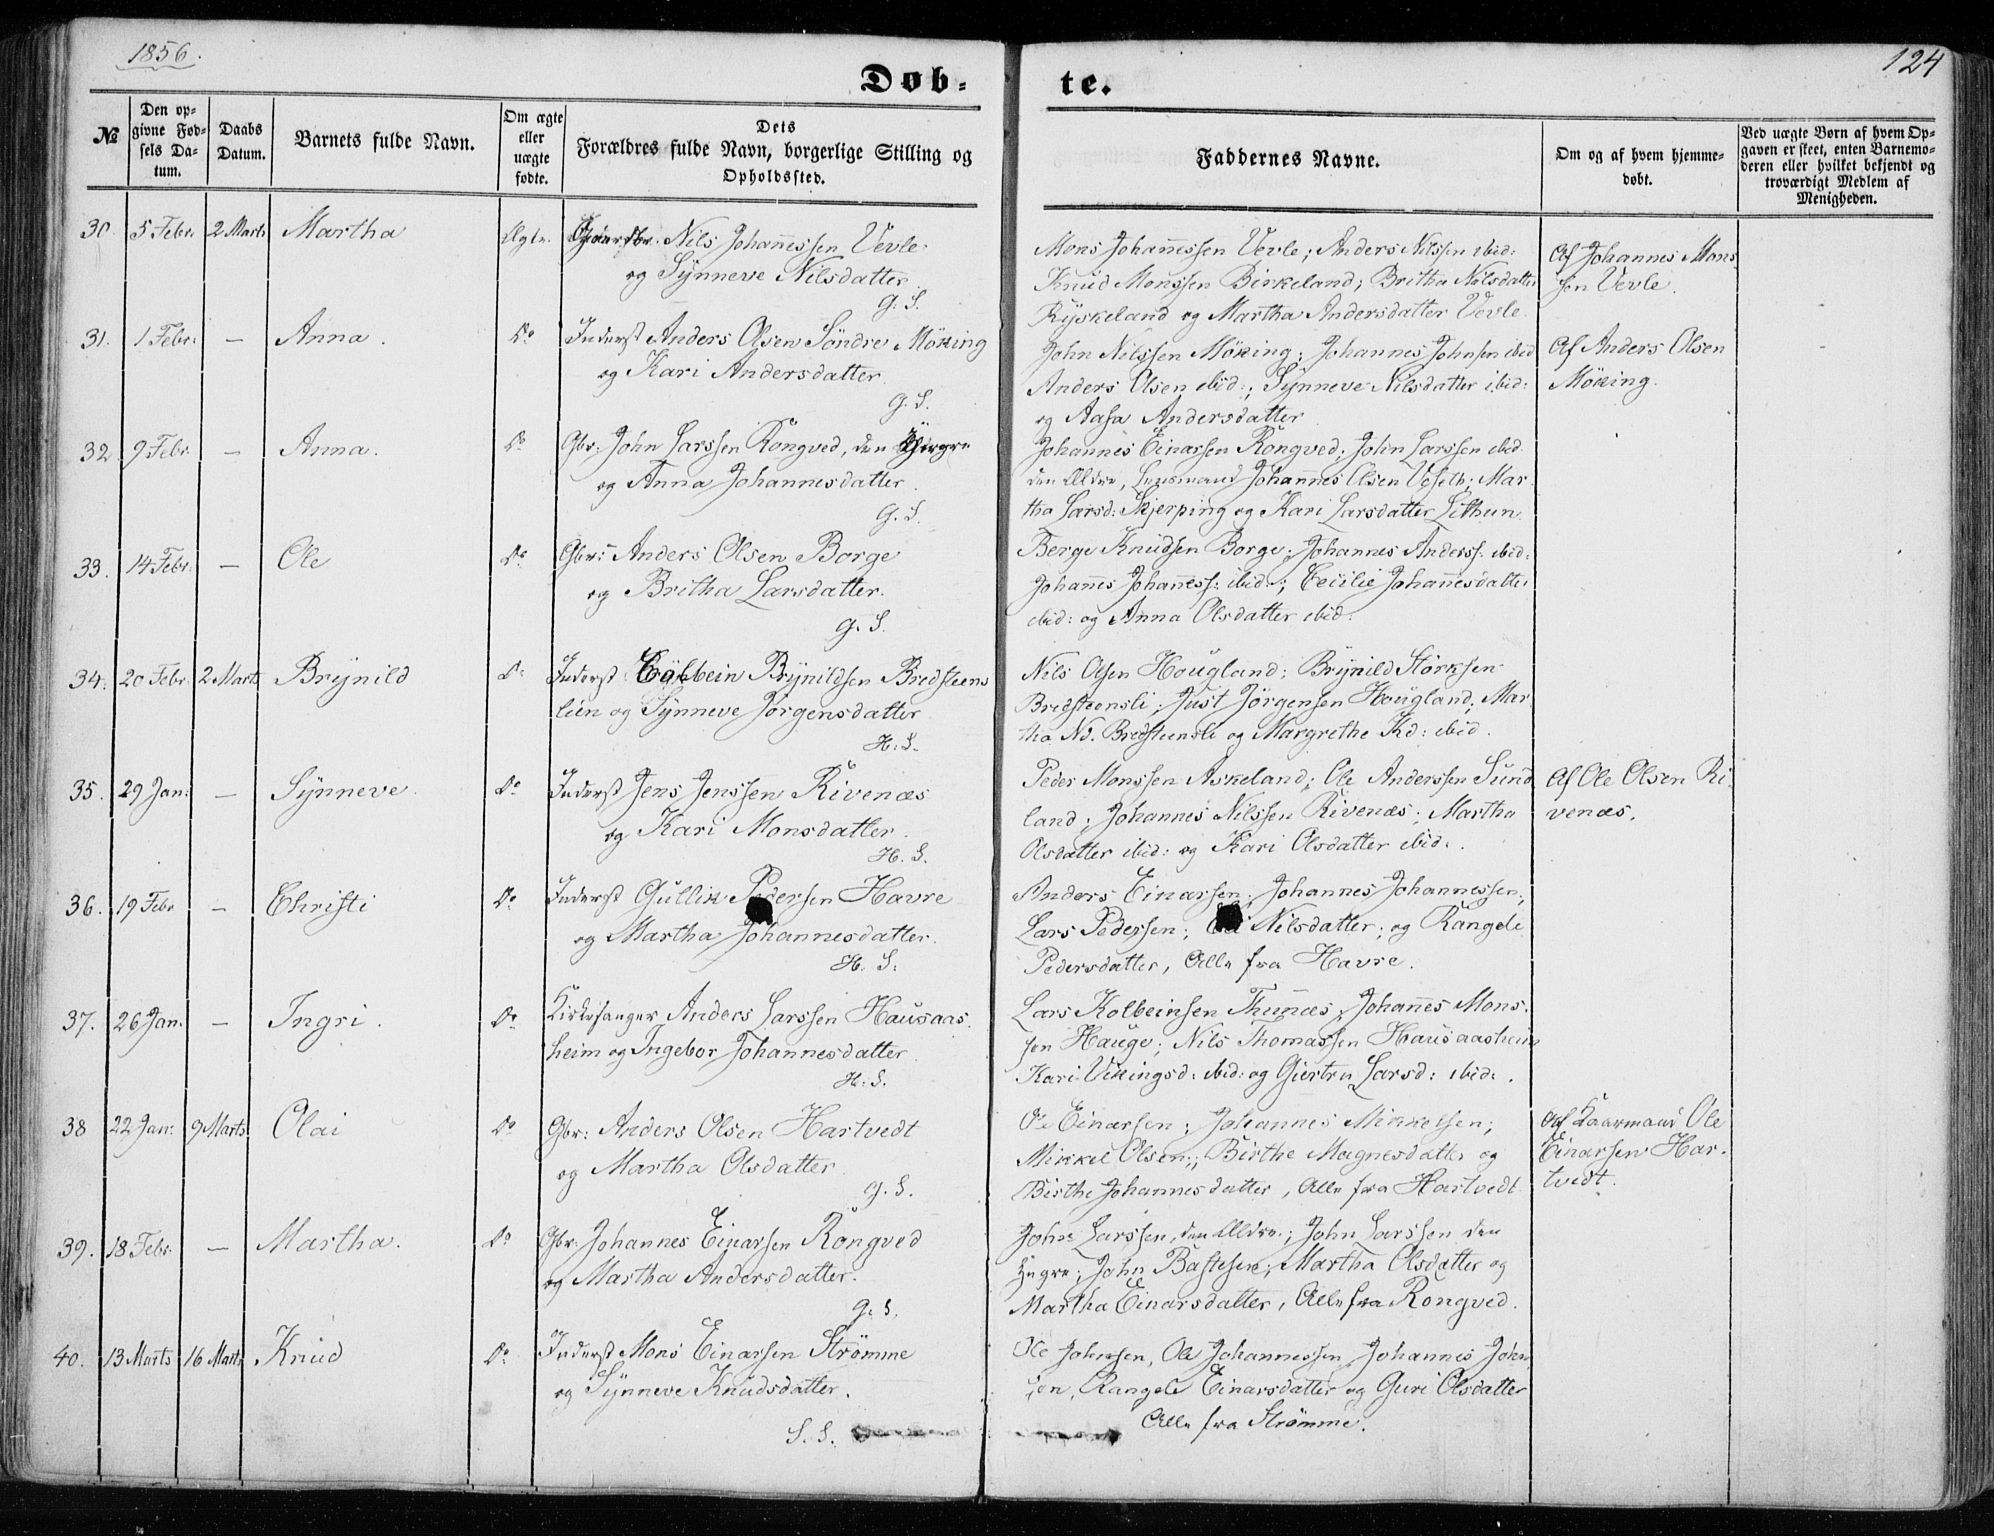 1856.
124
Døb-
te.
№
Den op-
givne Fød-
sels Da-
tum.
Daabs
Datum.
Barnets fulde Navn.
Om ægte
eller
uægte
fødte.
Dets
Forældres fulde Navn, borgerlige Stilling og
Opholdssted.
Faddernes Navne.
Om og af hvem hjemme-
døbt.
Ved uægte Børn af hvem Op-
gaven er skeet, enten Barnemo-
deren eller hvilket bekjendt og
troværdigt Medlem af
Menigheden.
30. 5 Febr. 2 Marts Martha Ægte. Nils Johannessen Vevle
og Synneve Nilsdatter
G. S.
Mons Johannessen Vevle; Anders Nilssen ibid:
Knud Monssen Birkeland; Britha Nilsdatter
Ryskeland og Martha Andersdatter Vevle
Af Johannes Mons
sen Vevle.
31. 1 Febr. — Anna. Do Inderst Anders Olsen Søndre Møking
og Kari Andersdatter
G. S.
John Nilssen Møking; Johannes Johnsen ibid
Anders Olsen ibid:; Synneve Nilsdatter ibid:
og Aasa Andersdatter
Af Anders Olsen
Møking.
32. 9 Febr. — Anna. Do Gbr: John Larssen Rongved, den Yngre
og Anna Johannesdatter.
G. S.
Johannes Einarsen Rongved; John Larssen ibid.
den Ældre, Lensmand Johannes Olsen Veseth; Mar
tha Larsd: Skjerping og Kari Larsdatter Lethun.
33. 14 Febr. — Ole Do Gbr: Anders Olsen Borge
og Britha Larsdatter.
G. S.
Berge Knudsen Borge; Johannes Anderss: ibid:
Johanes Johaness: ibid:; Cecilie Johanesdatter
ibid: og Anna Olsdatter ibid.
34. 20 Febr. 2 Marts Brynild Do Inderst Colbein Brynildsen Bredsteens
lien og Synneve Jørgensdatter
H. S.
Nils Olsen Hougland; Brynild Størksen
Bredsteensli; Just Jørgensen Hougland; Mar
tha Nd. Bredsteensli og Margrethe Kd: ibid.
35. 29 Jan: — Synneve. Do Inderst Jens Jenssen Rivenæs
og Kari Monsdatter.
H. S.
Peder Monssen Askeland; Ole Anderssen Sund
land; Johannes Nilssen Rivenæs; Martha
Olsdatter ibid: og Kari Olsdatter ibid:.
Af Ole Olsen Ri
venæs.
36. 19 Febr — Christi Do Inderst Gullik Pedersen Havre
og Martha Johannesdatter.
H. S.
Anders Einarsen; Johannes Johannessen;
Lars Pedersen; Nilsdatter; og Rangele
Pedersdatter, Alle fra Havre.
37. 26 Jan. — Ingri. Do Kirkesanger Anders Larssen Hausaas
heim og Ingebor Johannesdatter
H. S.
Lars Kolbeinsen Thunæs, Johanes Mons-
sen Hauge; Nils Thomassen Hausaasheim
Kari Vikingsd: ibid: og Giertru Larsd: ibid:.
38 22 Jan: 9 Marts Olai Do Gbr: Anders Olsen Hartvedt
og Martha Olsdatter
G. S.
Ole Einarsen; Johannes Mikkelsen;
Mikkel Olsen;; Birthe Magnesdatter og
Birthe Johannesdatter, Alle fra Hartvedt
Af Kaarmand Ole
Einarsen Har-
tvedt.
39. 18 Febr. — Martha. Do Gbr: Johannes Einarsen Rongved
og Martha Andersdatter.
G. S.
John Larssen, den Ældre.; John Larssen den
Yngre; John Bastesen; Martha Olsdatter og
Martha Einarsdatter, Alle fra Rongved.
40. 13 Marts 16 Marts Knud Do Inderst Mons Einarsen Strømme
og Synneve Knudsdatter.
S. S.
Ole Johnsen, Ole Johannessen, Johannes John
sen, Rangele Einarsdatter og Guri Olsdatter
Alle fra Strømme.